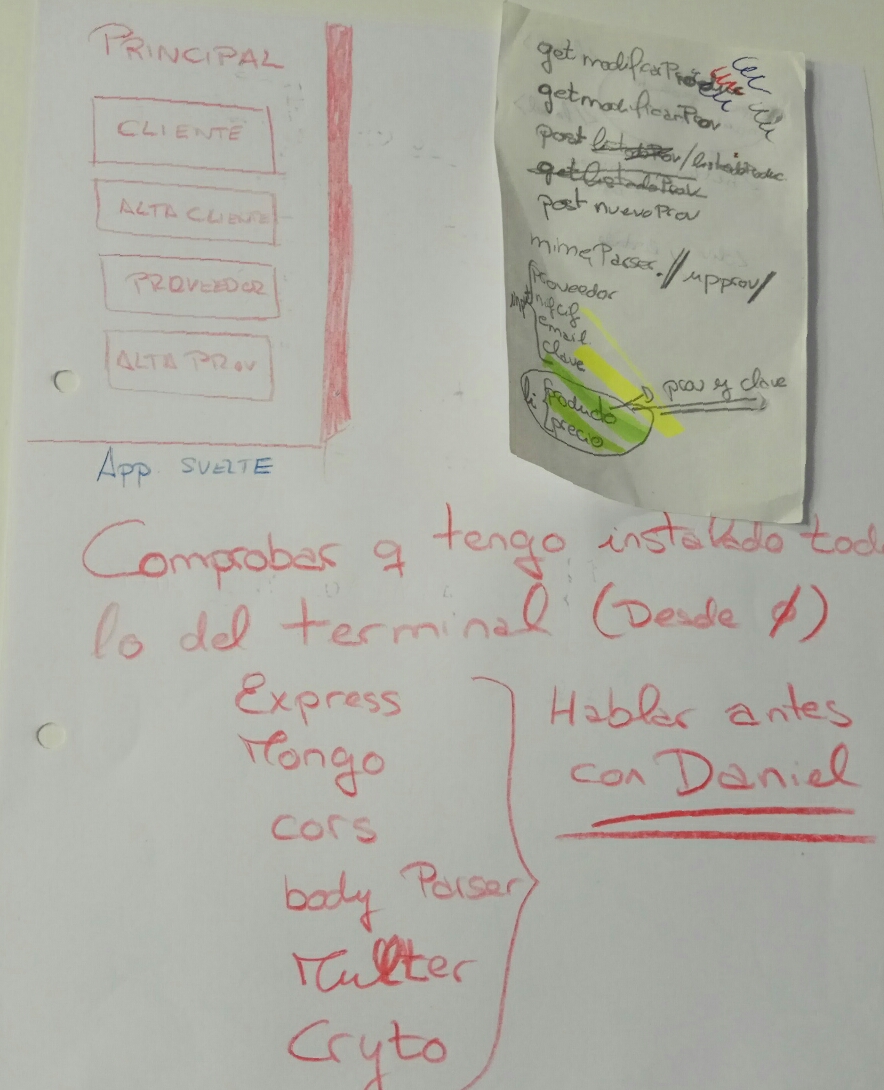 PRINCIPAL
CLIENTE
ALTA CLIENTE
PROVEEDOR
ALTA PROV
App SVELTE
getmodificarProv
post
post nuevoProv
mimeParser. // upprov/
proveedor
nifcif
email
clave
li producto
precio
prov y clave
Comprobar q tengo instalado tod
lo del terminal (Desde 0)
Express
Mongo
cors
body Parser
Multer
Cryto
Hablar antes
con Daniel